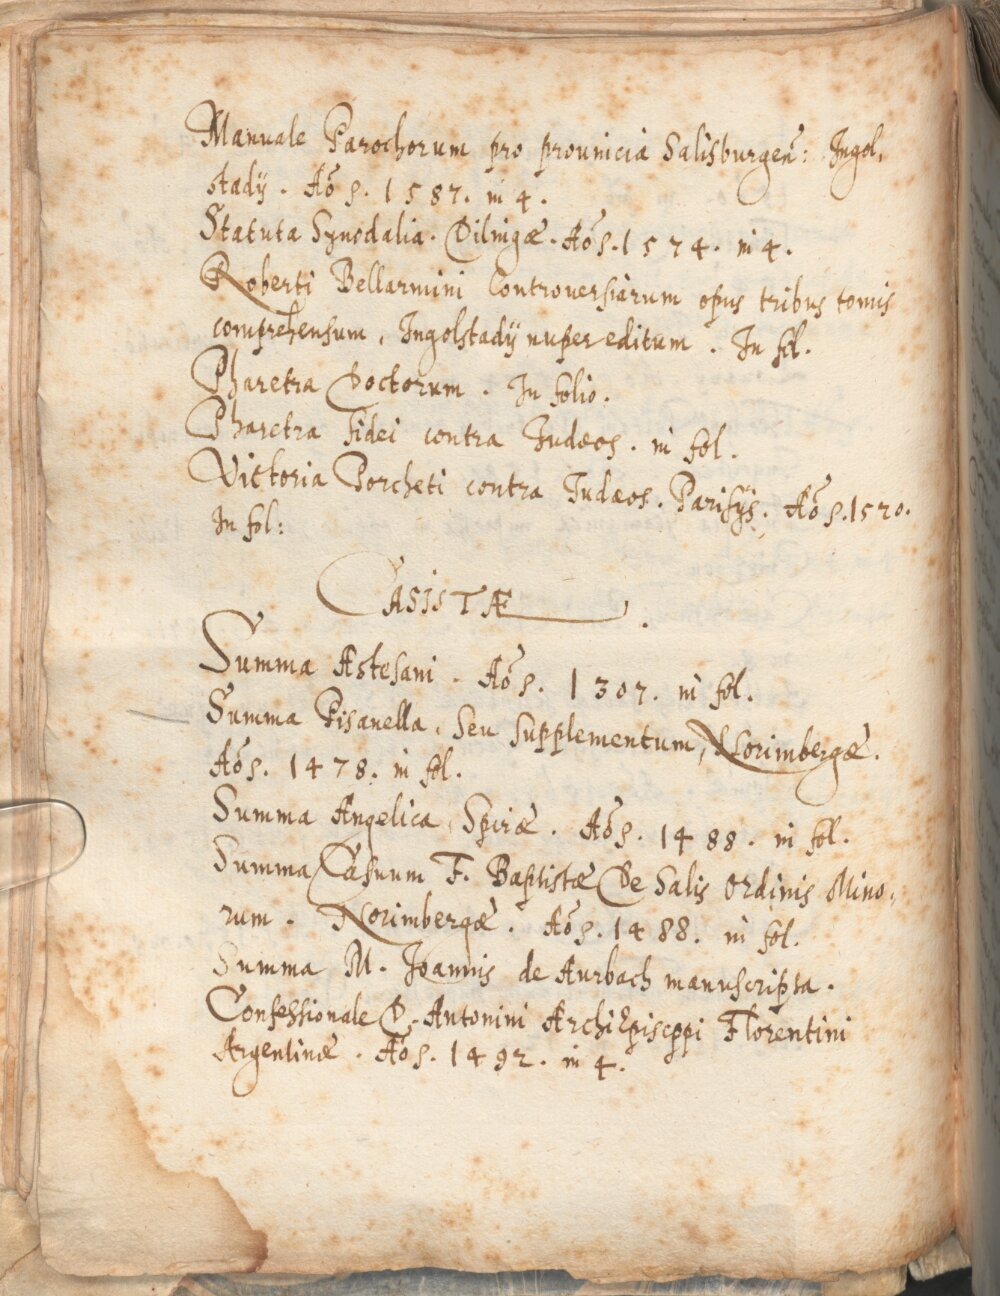 Manuale Parochorum pro prouincia Salisburgen̄: Ingol,
stadij. Aō p. 1587. in 4.
Statuta Synodalia. Dilingæ. Aō p. 1574. in 4.
Roberti Bellarmini Controuersiarum opus tribus tomis
comprehensum, Ingolstadij nuper editum. In fol.
Pharetra Doctorum. In folio.
Pharetra fidei contra Iudæos. in fol.
Victoria Porcheti contra Iudæos. Parisijs. Aō p. 1520.
In fol:
CASISTÆ.
Summa Astesani. Aō p. 1307. in fol.
Summa Pisanella, seu supplementum, Norimbergæ.
Aō p. 1478. in fol.
Summa Angelica, Spiræ. Aō p. 1488. in fol.
Summa Casuum F. Baptistæ De Salis Ordinis Mino,
rum. Norimbergæ. Aō p. 1488. in fol.
Summa M. Joannis de Aurbach manuscripta.
Confessionale D. Antonini ArchiEpiscopi Florentini
Argentinæ. Aō p. 1492. in 4.